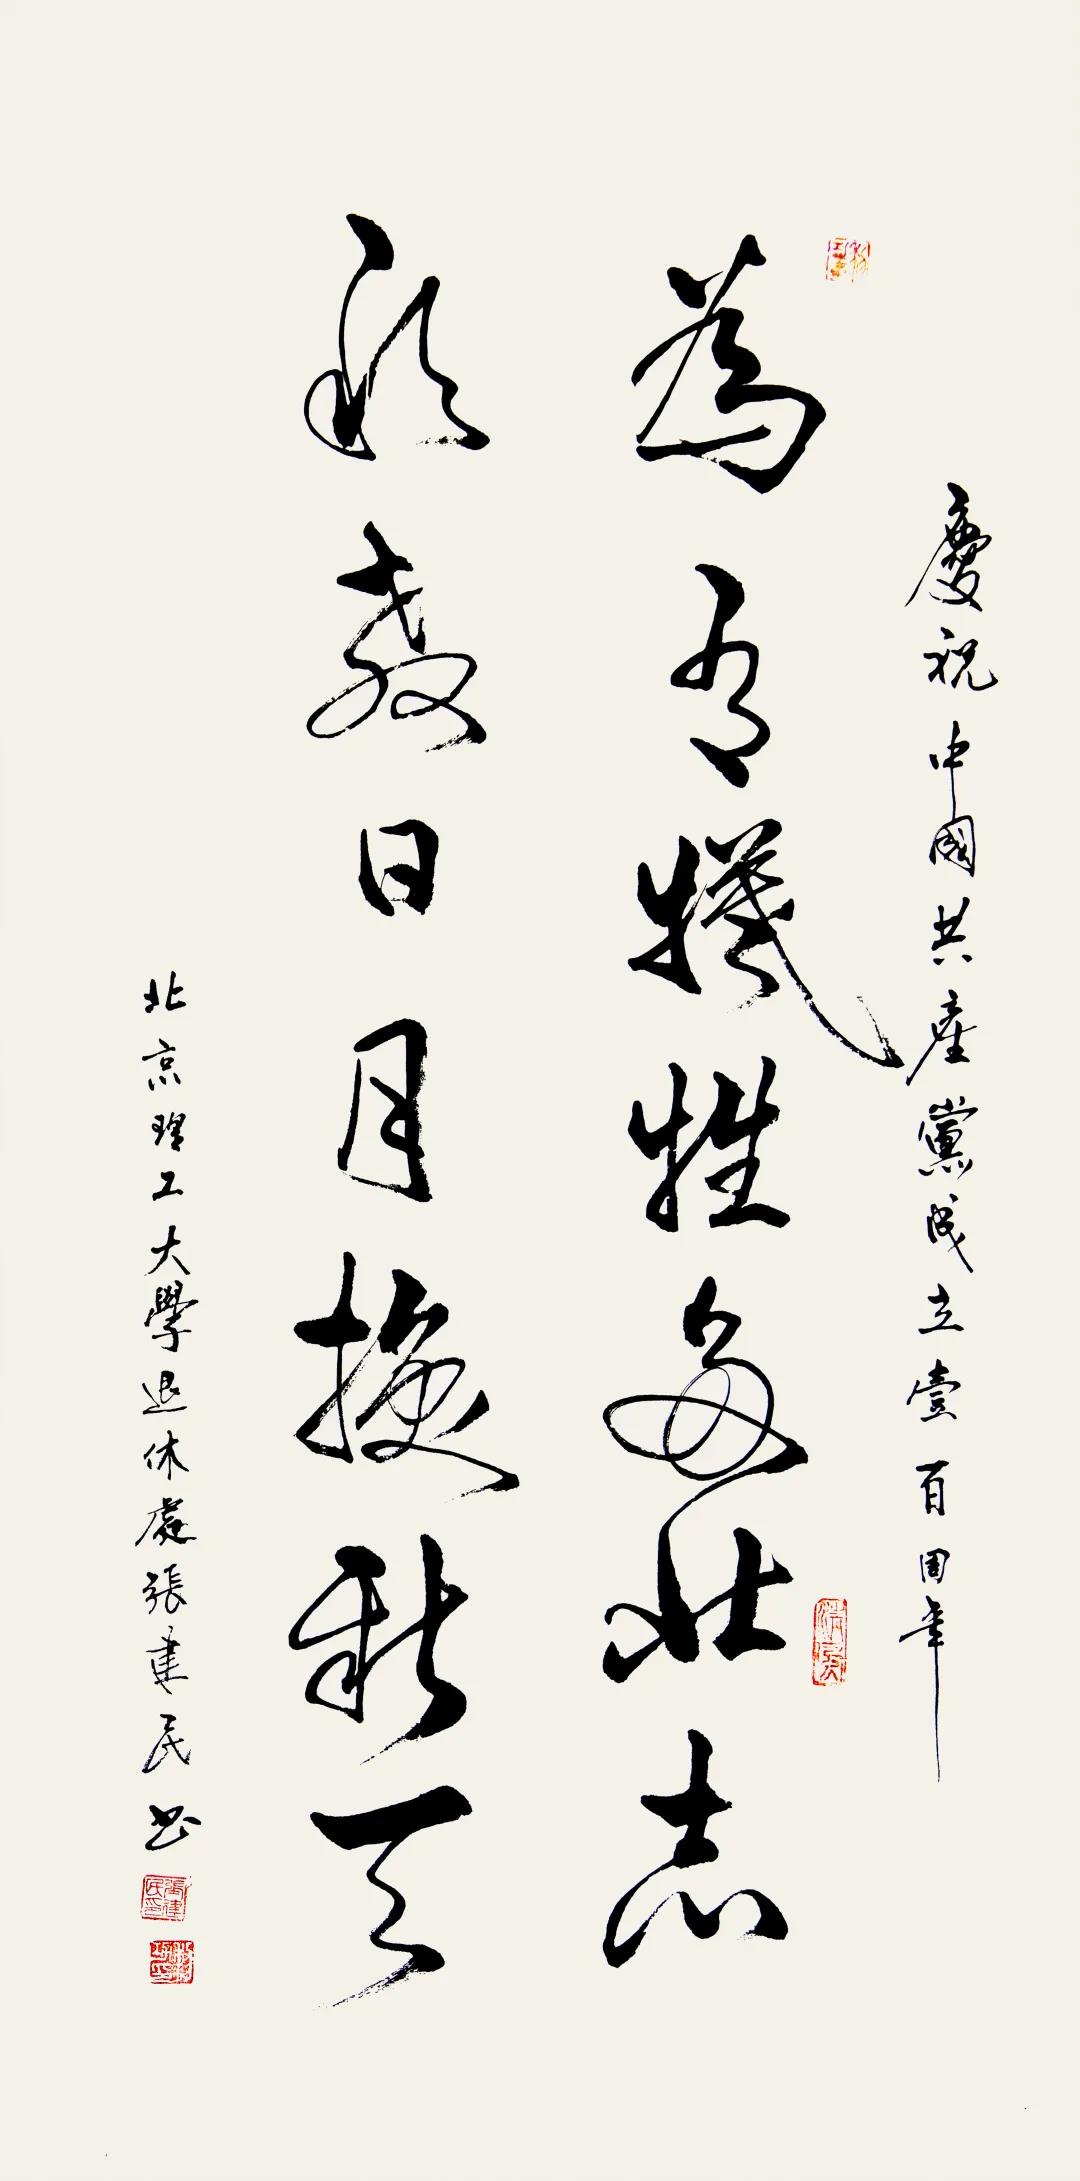 慶祝中國共產黨成立壹百周年
為有犧牲多壯志
敢教日月換新天
北京理工大學退休處張建民書
張建民印